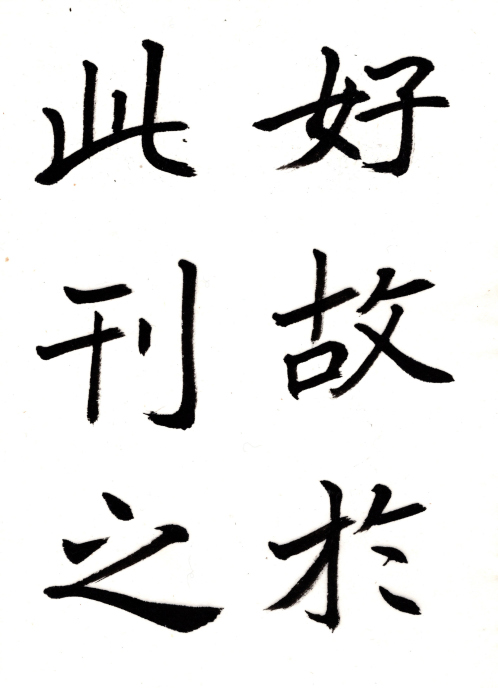 好故於
此刊之